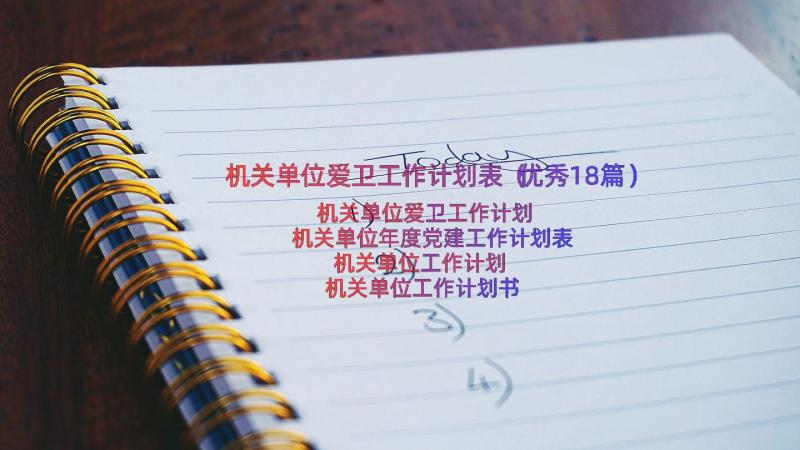 Today
机关单位爱卫工作计划表（优秀18篇）
1)
机关单位爱卫工作计划
机关单位年度党建工作计划表
2)
机关单位工作计划
机关单位工作计划书
3)
4)